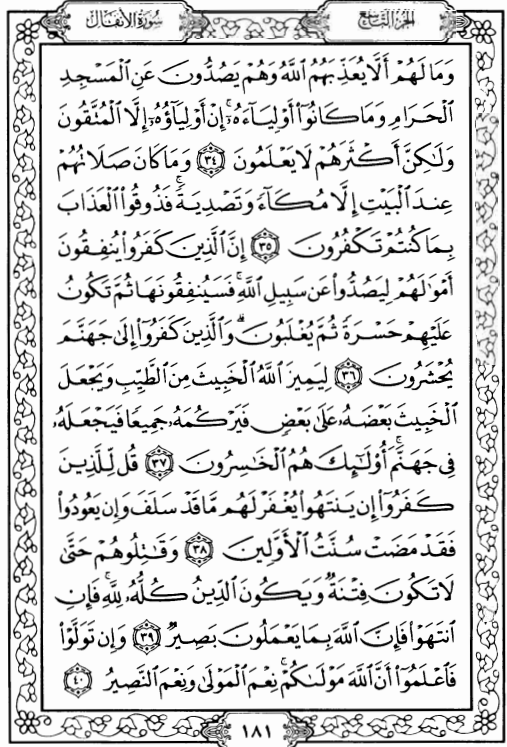 سُورَةُ الأَنفَالِ
الجُزءُ التَّاسِعُ
وَمَا لَهُمْ أَلَّا يُعَذِّبَهُمُ اللَّهُ وَهُمْ يَصُدُّونَ عَنِ الْمَسْجِدِ
الْحَرَامِ وَمَا كَانُوٓا۟ أَوْلِيَآءَهُۥٓ ۚ إِنْ أَوْلِيَآؤُهُۥٓ إِلَّا الْمُتَّقُونَ
وَلَٰكِنَّ أَكْثَرَهُمْ لَا يَعْلَمُونَ ٣٤ وَمَا كَانَ صَلَاتُهُمْ
عِندَ الْبَيْتِ إِلَّا مُكَآءً وَتَصْدِيَةً ۚ فَذُوقُوا۟ الْعَذَابَ
بِمَا كُنتُمْ تَكْفُرُونَ ٣٥ إِنَّ الَّذِينَ كَفَرُوا۟ يُنفِقُونَ
أَمْوَٰلَهُمْ لِيَصُدُّوا۟ عَن سَبِيلِ اللَّهِ ۚ فَسَيُنفِقُونَهَا ثُمَّ تَكُونُ
عَلَيْهِمْ حَسْرَةً ثُمَّ يُغْلَبُونَ ۗ وَالَّذِينَ كَفَرُوٓا۟ إِلَىٰ جَهَنَّمَ
يُحْشَرُونَ ٣٦ لِيَمِيزَ اللَّهُ الْخَبِيثَ مِنَ الطَّيِّبِ وَيَجْعَلَ
الْخَبِيثَ بَعْضَهُۥ عَلَىٰ بَعْضٍ فَيَرْكُمَهُۥ جَمِيعًا فَيَجْعَلَهُۥ
فِى جَهَنَّمَ ۚ أُو۟لَٰٓئِكَ هُمُ الْخَٰسِرُونَ ٣٧ قُل لِّلَّذِينَ
كَفَرُوٓا۟ إِن يَنتَهُوا۟ يُغْفَرْ لَهُم مَّا قَدْ سَلَفَ وَإِن يَعُودُوا۟
فَقَدْ مَضَتْ سُنَّتُ الْأَوَّلِينَ ٣٨ وَقَٰتِلُوهُمْ حَتَّىٰ
لَا تَكُونَ فِتْنَةٌ وَيَكُونَ الدِّينُ كُلُّهُۥ لِلَّهِ ۚ فَإِنِ
انتَهَوْا۟ فَإِنَّ اللَّهَ بِمَا يَعْمَلُونَ بَصِيرٌ ٣٩ وَإِن تَوَلَّوْا۟
فَاعْلَمُوٓا۟ أَنَّ اللَّهَ مَوْلَىٰكُمْ ۚ نِعْمَ الْمَوْلَىٰ وَنِعْمَ النَّصِيرُ ٤٠
١٨١